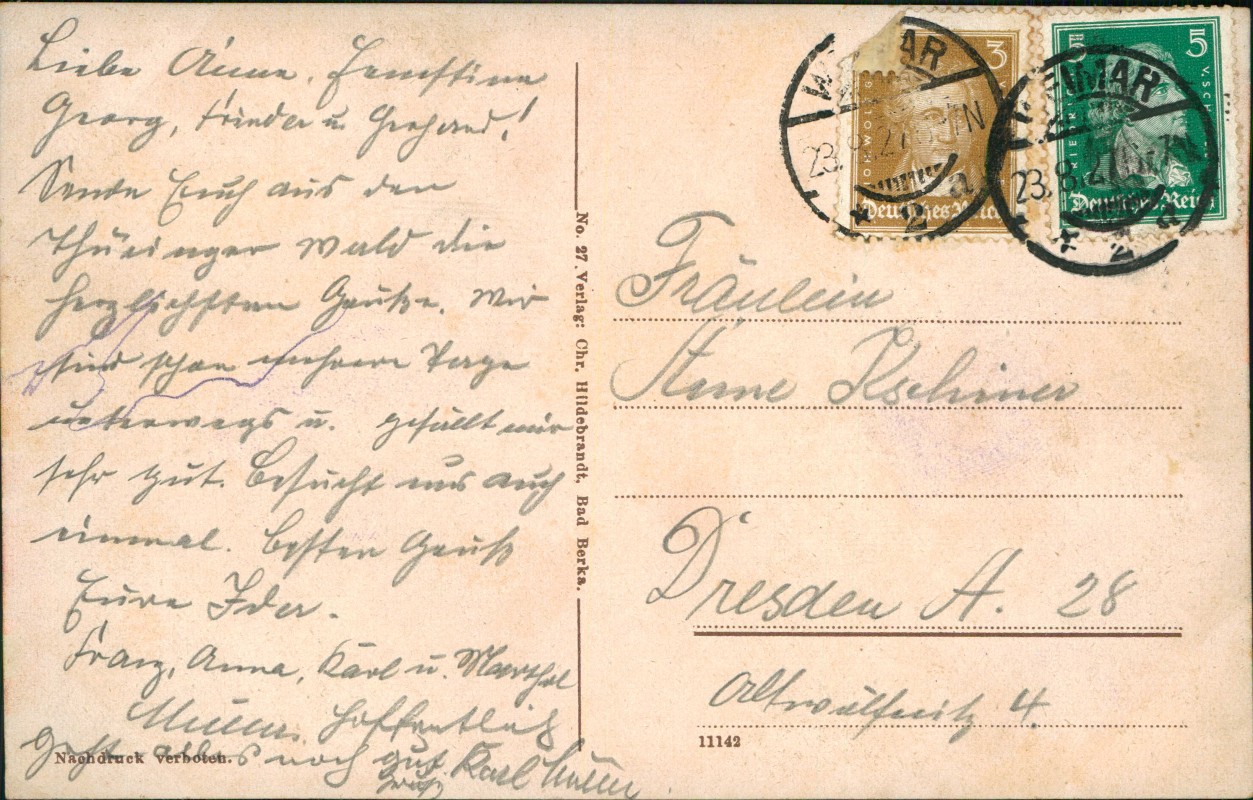 Liebe Änne, Ernstine
Georg, Frieder u. Gerhard!
Sende Euch aus den
Thüringer Wald die
herzlichsten Grüße. Wir
sind schon mehrere Tage
unterwegs u. gefällt mir
sehr gut. Besucht uns auch
einmal. Besten Gruß
Eure Ida.
Franz, Anna, Karl u. Marthel
Hoffentlich
geht alles noch gut. Karl
Gruß
Nachdruck verboten.
No. 27. Verlag: Chr. Hildebrandt, Bad Berka.
WEIMAR
23.8.27
* 2 a
3
Deutsches Reich
WEIMAR
23.8.27
* 2 a
5
Deutsches Reich
Fräulein
Dresden A. 28
Altwölfnitz 4.
11142